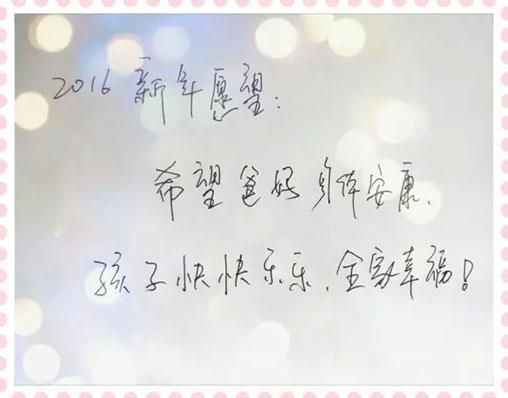 2016 新年愿望:
希望爸妈身体安康,
孩子快快乐乐,全家幸福!